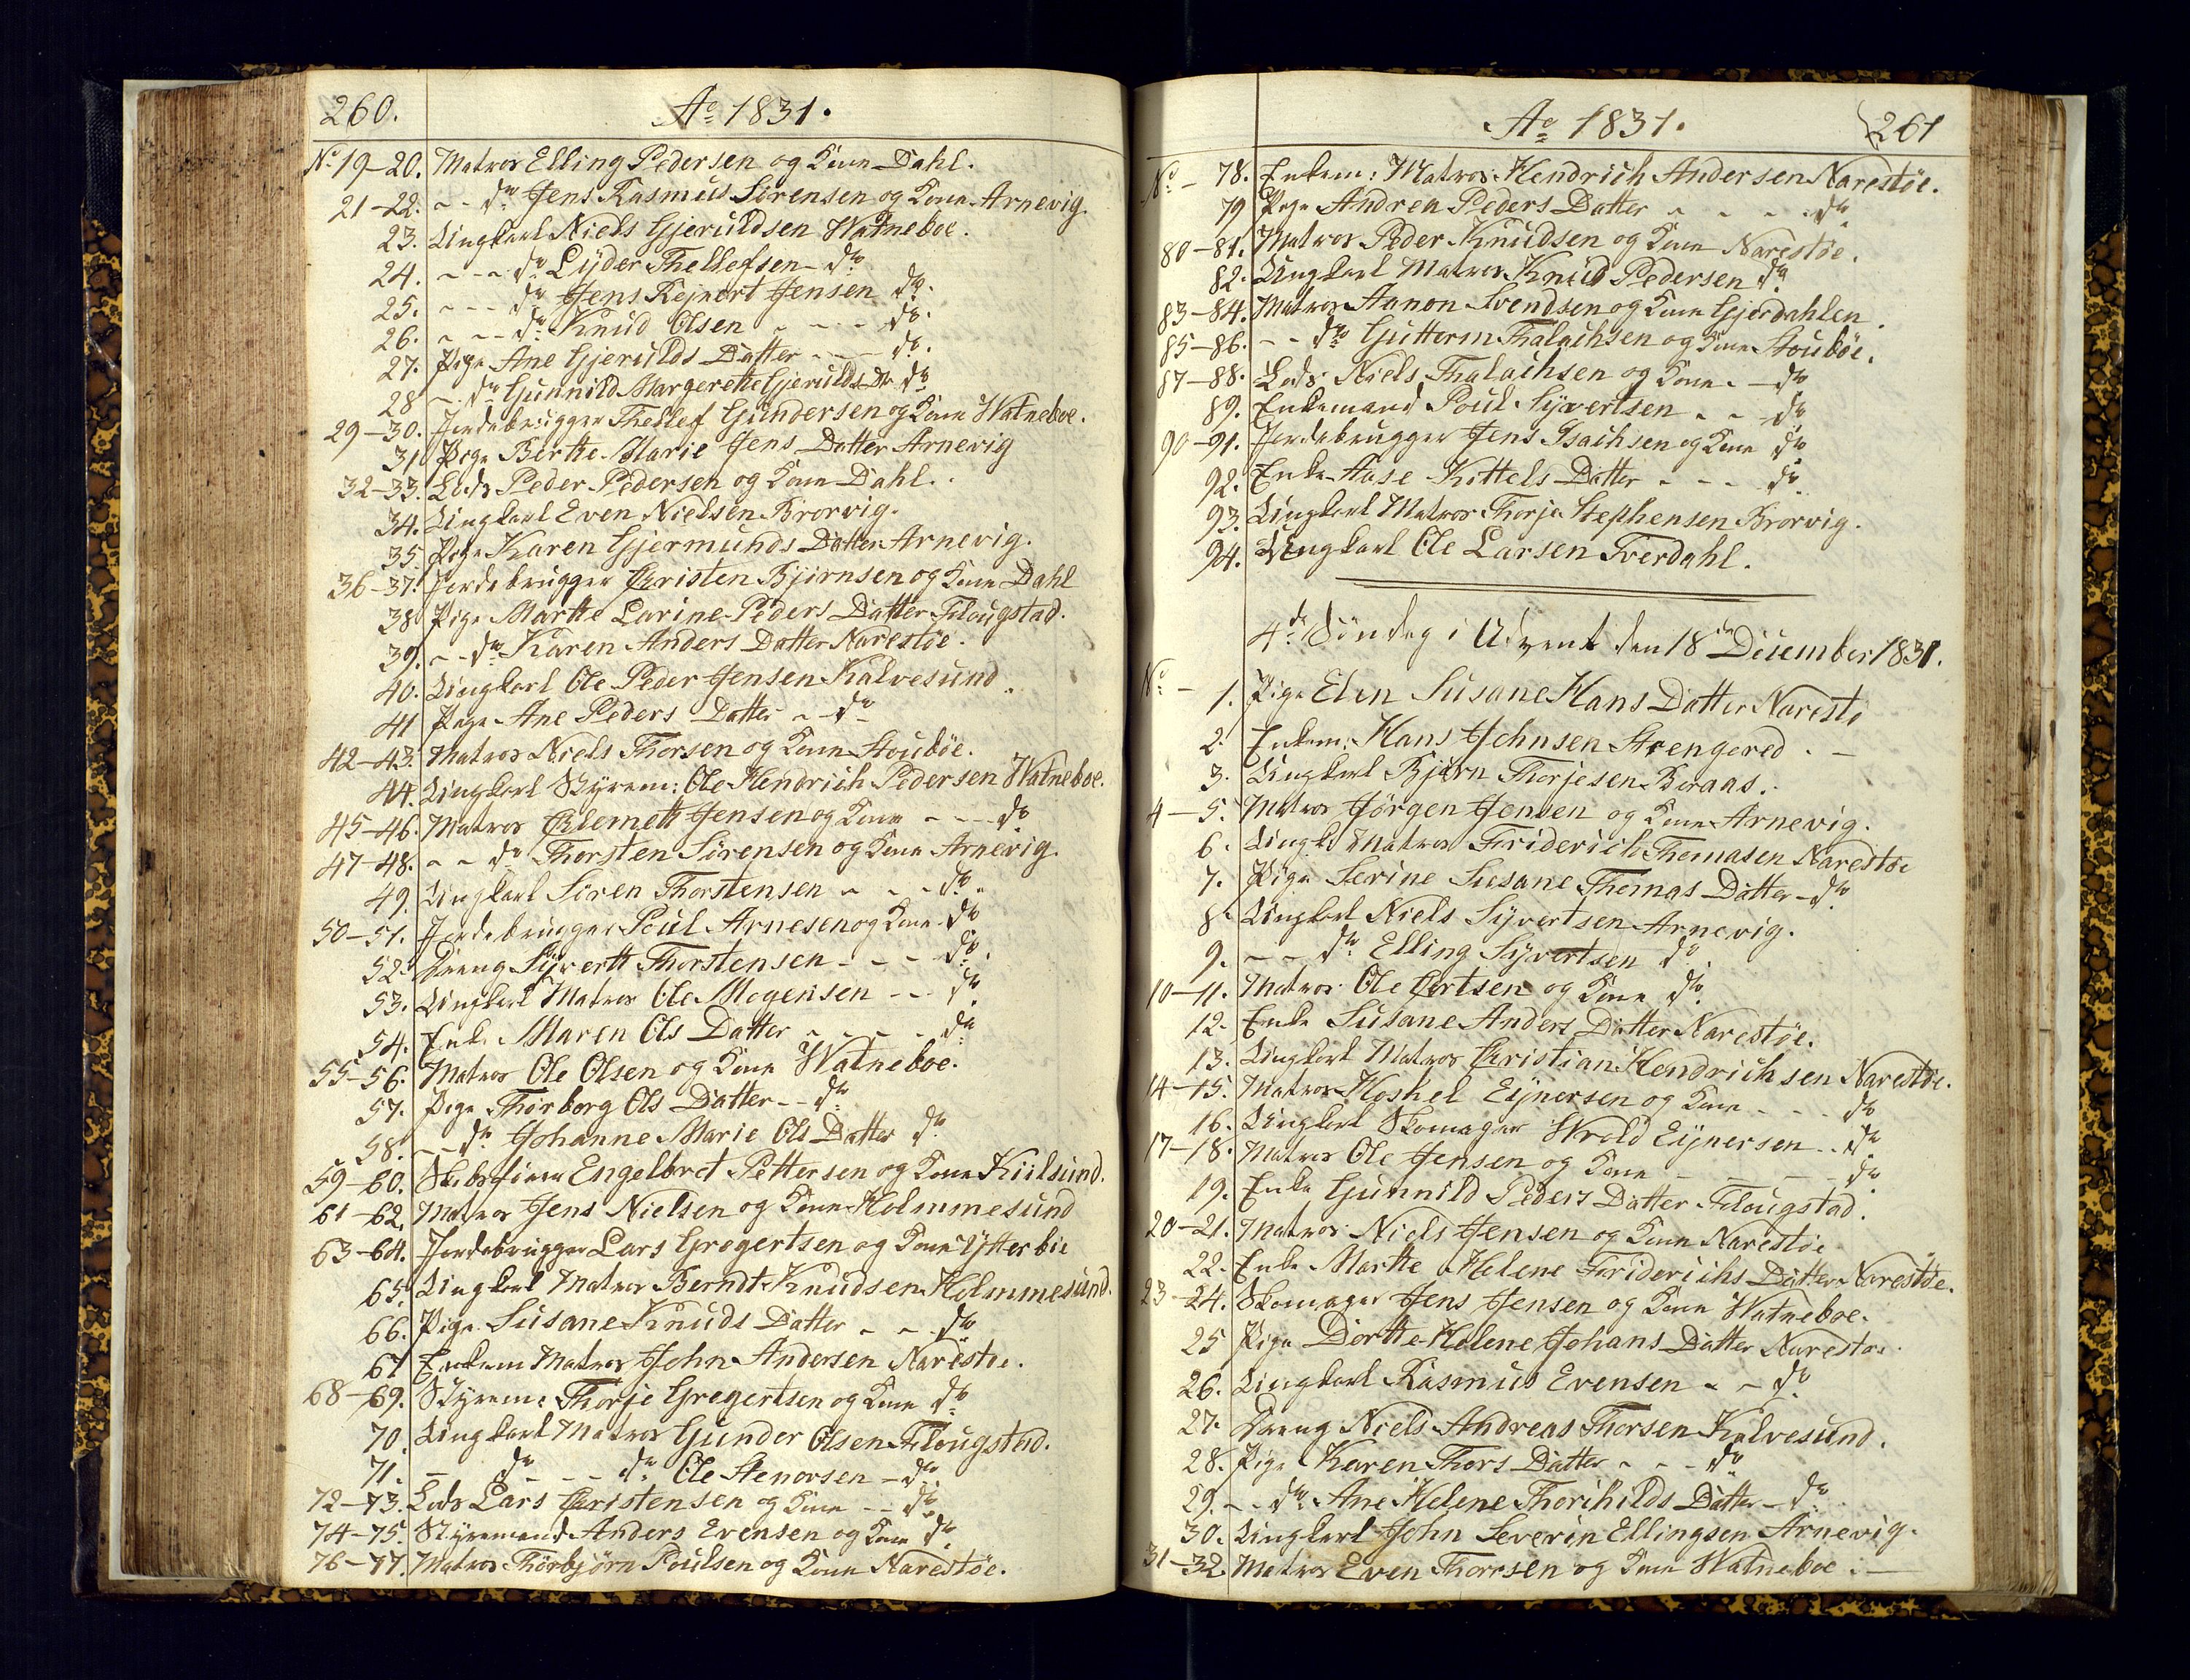 260.
Ao 1831.
No 19-20. Matros Elling Pedersen og Kone Dahl.
21-22. - - do Jens Rasmus Sörensen og Kone Arnevig.
23. Ungkarl Niels Gjeruldsen Watneboe.
24. - - - do Lyder Thellefsen - do
25. - - - do Jens Rejnert Jensen do.
26. - - - do Knud Olsen - - - do.
27. Pige Ane Gjerulds Datter - - - do.
28 - - do Gunnild Margerethe Gjerulds Dr do
29-30. Jordebrugger Thellef Gundersen og Kone Watneboe.
31 Pige Berthe Marie Jens Datter Arnevig
32-33. Lods Peder Pedersen og Kone Dahl.
34. Ungkarl Even Nielsen Brorvig.
35 Pige Karen Gjermunds Datter Arnevig.
36-37. Jordebrugger Christen Björnsen og Kone Dahl
38 Pige Marthe Larine Peders Datter Flougstad.
39. - - do Karen Anders Datter Narestöe.
40. Ungkarl Ole Peder Jensen Kalvesund.
41 Pige Ane Peders Datter - - do
42-43. Matros Niels Thorsen og Kone Stouböe.
44. Ungkarl Styrem: Ole Hendrich Pedersen Watneboe.
45-46. Matros Clemett Jensen og Kone - - - do.
47-48. - - do Thorsten Sörensen og Kone Arnevig.
49. Ungkarl Sören Thorstensen - - - do.
50-51. Jordebrugger Poul Arnesen og Kone do
52. Dreng Syvertt Thorstensen - - - do.
53. Ungkarl Matros Ole Mogensen - - do
54. Enke Maren Ols Datter - - - - do
55-56. Matros Ole Olsen og Kone Watneboe.
57. Pige Thorborg Ols Datter - - do
58. - - do Johanne Marie Ols Datter do
59-60. Skibsförer Engelbret Pettersen og Kone Kiilsund.
61-62. Matros Jens Nielsen og Kone Holmmesund
63-64. Jordebrugger Lars Gregertsen og Kone Ytterböe
65. Ungkarl Matros Berndt Knudsen Holmmesund.
66. Pige Susane Knuds Datter - - do
67 Enkem Matros John Andersen Narestöe.
68-69. Styrem: Thorje Gregertsen og Kone do
70. Ungkarl Matros Gunder Olsen Flougstad.
71. - do - - do Ole Stenorsen - do
72-73. Lods Lars Christensen og Kone - - do
74-75. Styremand Anders Evensen og Kone do
76-77. Matros Thorbjørn Poulsen og Kone Narestöe.
Ao 1831.
261
No - 78. Enkem: Matros Hendrich Andersen Narestöe.
79 Pige Andrea Peders Datter - - - - do
80-81. Matros Peder Knudsen og Kone Narestöe.
82. Ungkarl Matros Knud Pedersen do
83-84. Matros Aanon Svendsen og Kone Gjerdahlen.
85-86. - - do Gutterm Thalachsen og Kone Stouböe.
87-88. Lods Niels Thalachsen og Kone - do
89. Enkemand Poul Syvertsen - - do
90-91. Jordebrugger Jens Isachsen og Kone do
92. Enke Aase Kittels Datter - - - do
93. Ungkarl Matros Thorje Stephensen Brorvig.
94. Ungkarl Ole Larsen Tverdahl.
4de Söndag i Advent den 18de December 1831.
No - 1. Pige Elen Susane Hans Datter Narestö
2. Enkem: Hans Johnsen Strengered. -
3. Ungkarl Björn Thorjesen Boraas.
4-5. Matros Jørgen Jensen og Kone Arnevig.
6. Ungk: Matros Friderich Thomasen Narestöe
7. Pige Serine Susane Thomas Datter - do
8. Ungkarl Niels Syvertsen Arnevig.
9. - - do Elling Syvertsen do.
10-11. Matros Ole Certsen og Kone do.
12. Enke Susane Anders Datter Narestöe.
13. Ungkarl Matros Christian Hendrichsen Narestöe.
14-15. Matros Hoskel Eynersen og Kone - - - do
16. Ungkarl Skomager Wrold Eynersen - - do
17-18. Matros Ole Jensen og Kone - - - do
19. Enke Gunnild Peders Datter Flougstad.
20-21. Matros Niels Jensen og Kone Narestöe
22. Enke Marthe Helene Friderichs Datter Narestöe.
23-24. Skomager Jens Jensen og Kone Watneboe.
25 Pige Dorthe Helene Johans Datter Narestöe.
26. Ungkarl Rasmus Evensen - - do
27. Dreng Niels Andreas Thorsen Kalvesund.
28. Pige Karen Thors Datter - - - do
29. - - do Ane Helene Thorchilds Datter - do
30. Ungkarl John Severin Ellingsen Arnevig.
31-32. Matros Even Thorsen og Kone Watneboe. -